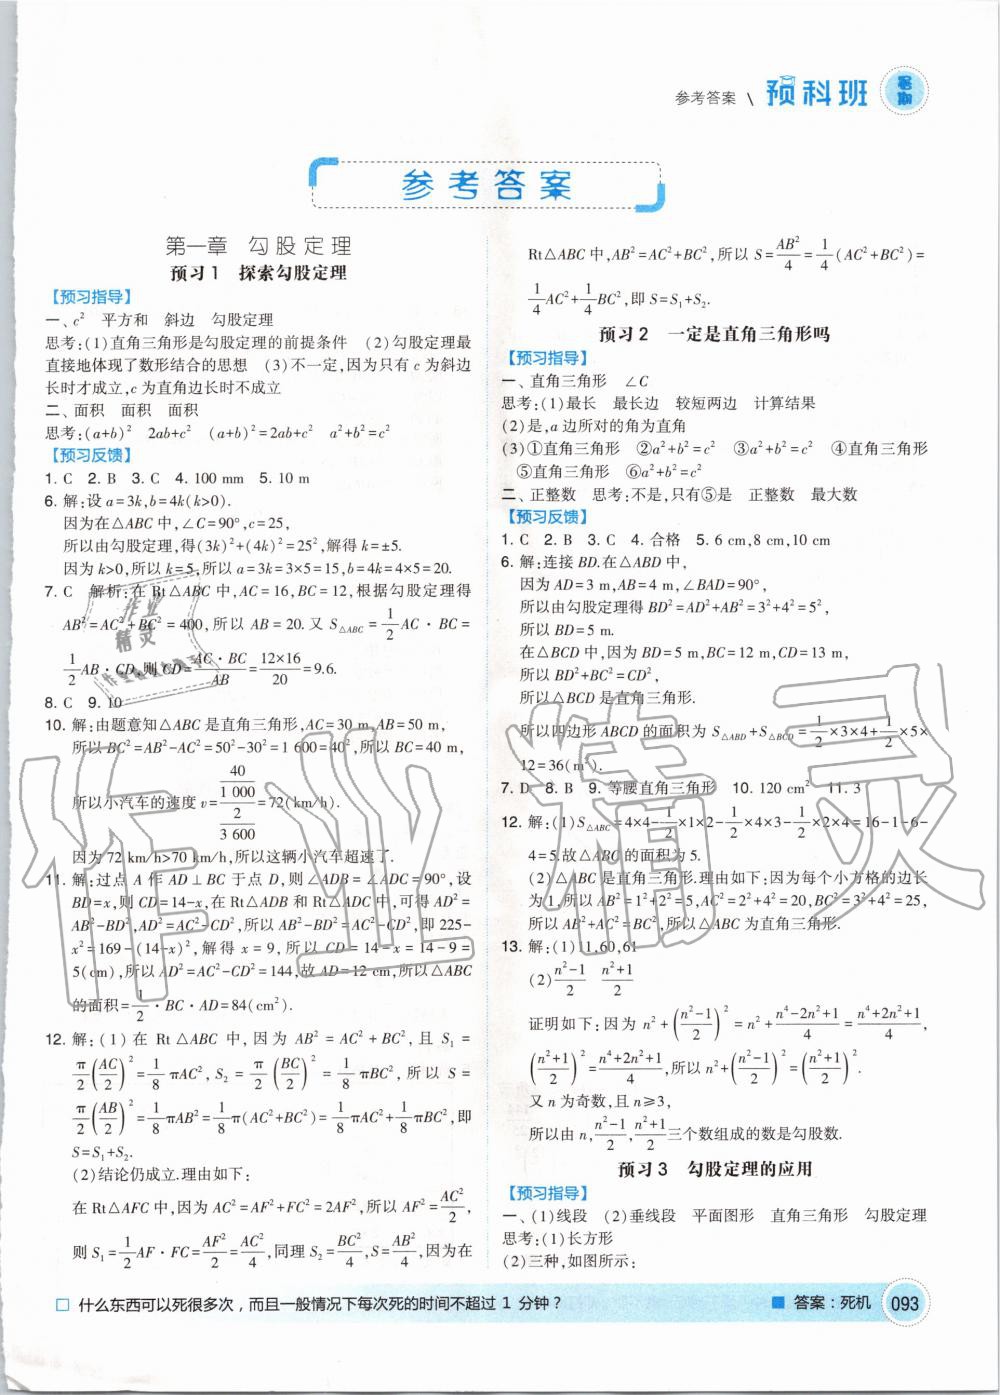 参考答案 \ 预科班 暑期
参考答案
第一章 勾股定理
预习1 探索勾股定理
【预习指导】
一、c² 平方和 斜边 勾股定理
思考:(1)直角三角形是勾股定理的前提条件 (2)勾股定理最
直接地体现了数形结合的思想 (3)不一定,因为只有c为斜边
长时才成立,c为直角边长时不成立
二、面积 面积 面积
思考:(a+b)² 2ab+c² (a+b)²=2ab+c² a²+b²=c²
【预习反馈】
1. C 2. B 3. C 4. 100 mm 5. 10 m
6. 解:设a=3k,b=4k(k>0).
因为在△ABC中,∠C=90°,c=25,
所以由勾股定理,得(3k)²+(4k)²=25²,解得k=±5.
因为k>0,所以k=5,所以a=3k=3×5=15,b=4k=4×5=20.
7. C 解析:在Rt△ABC中,AC=16,BC=12,根据勾股定理得
AB²=AC²+BC²=400,所以AB=20.又S△ABC=1/2 AC·BC=
1/2 AB·CD,则CD=AC·BC/AB=12×16/20=9.6.
8. C 9. 10
10. 解:由题意知△ABC是直角三角形,AC=30 m,AB=50 m,
所以BC²=AB²-AC²=50²-30²=1 600=40²,所以BC=40 m.
所以小汽车的速度v=(40/1 000)/(2/3 600)=72(km/h).
因为72 km/h>70 km/h,所以这辆小汽车超速了.
11. 解:过点A作AD⊥BC于点D,则∠ADB=∠ADC=90°,设
BD=x,则CD=14-x,在Rt△ADB和Rt△ADC中,可得AD²=
AB²-BD²,AD²=AC²-CD²,所以AB²-BD²=AC²-CD²,即225-
x²=169-(14-x)²,解得x=9,所以CD=14-x=14-9=
5(cm),所以AD²=AC²-CD²=144,故AD=12 cm,所以△ABC
的面积=1/2·BC·AD=84(cm²).
12. 解:(1)在Rt△ABC中,因为AB²=AC²+BC²,且S₁=
π/2(AC/2)²=1/8 πAC²,S₂=π/2(BC/2)²=1/8 πBC²,所以S=
π/2(AB/2)²=1/8 πAB²=1/8 π(AC²+BC²)=1/8 πAC²+1/8 πBC²,即
S=S₁+S₂.
(2)结论仍成立.理由如下:
在Rt△AFC中,因为AC²=AF²+FC²=2AF²,所以AF²=AC²/2,
则S₁=1/2 AF·FC=AF²/2=AC²/4,同理S₂=BC²/4,S=AB²/4,因为在
Rt△ABC中,AB²=AC²+BC²,所以S=AB²/4=1/4(AC²+BC²)=
1/4 AC²+1/4 BC²,即S=S₁+S₂.
预习2 一定是直角三角形吗
【预习指导】
一、直角三角形 ∠C
思考:(1)最长 最长边 较短两边 计算结果
(2)是,a边所对的角为直角
(3)①直角三角形 ②a²+b²=c² ③a²+b²=c² ④直角三角形
⑤直角三角形 ⑥a²+b²=c²
二、正整数 思考:不是,只有⑤是 正整数 最大数
【预习反馈】
1. C 2. B 3. C 4. 合格 5. 6 cm,8 cm,10 cm
6. 解:连接BD.在△ABD中,
因为AD=3 m,AB=4 m,∠BAD=90°,
所以由勾股定理得BD²=AD²+AB²=3²+4²=5²,
所以BD=5 m.
在△BCD中,因为BD=5 m,BC=12 m,CD=13 m,
所以BD²+BC²=CD²,
所以△BCD是直角三角形.
所以四边形ABCD的面积为S△ABD+S△BCD=1/2×3×4+1/2×5×
12=36(m²).
7. D 8. B 9. 等腰直角三角形 10. 120 cm² 11. 3
12. 解:(1)S△ABC=4×4-1/2×1×2-1/2×4×3-1/2×2×4=16-1-6-
4=5.故△ABC的面积为5.
(2)△ABC是直角三角形.理由如下:因为每个小方格的边长
为1,所以AB²=1²+2²=5,AC²=2²+4²=20,BC²=3²+4²=25,
所以AB²+AC²=BC²,所以△ABC为直角三角形.
13. 解:(1)11,60,61
(2)n²-1/2 n²+1/2
证明如下:因为n²+(n²-1/2)²=n²+n⁴-2n²+1/4=n⁴+2n²+1/4,
(n²+1/2)²=n⁴+2n²+1/4,所以n²+(n²-1/2)²=(n²+1/2)².
又n为奇数,且n≥3,
所以由n,n²-1/2,n²+1/2三个数组成的数是勾股数.
预习3 勾股定理的应用
【预习指导】
一、(1)线段 (2)垂线段 平面图形 直角三角形 勾股定理
思考:(1)长方形
(2)三种,如图所示:
□ 什么东西可以死很多次,而且一般情况下每次死的时间不超过 1 分钟?
■ 答案:死机 093
作业精灵
作业
精灵